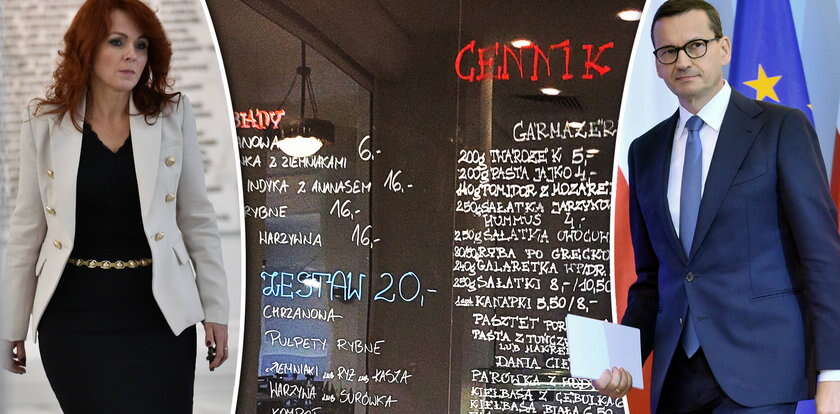 CENNIK
6,-
KA Z ZIEMNIAKAMI
INDYKA Z ANANASEM 16,-
RYBNE 16,-
WARZYWNA 16,-
ZESTAW 20,-
CHRZANOWA
PULPETY RYBNE
ZIEMNIAKI LUB RYŻ LUB KASZA
WARZYWA LUB SURÓWKA
KOMPOT
GARMAŻER
200g TWAROŻEK 5,-
200g PASTA JAJKO 4,-
POMIDOR Z MOZARE
250g SAŁATKA JARZYNOW
HUMMUS 4,-
250g SAŁATKA OWOCOW
RYBA PO GRECKU
240g GALARETKA
250g SAŁATKI 8,-/10,50
KANAPKI 5,50/8,-
PASZTET
PASTA Z TUŃCZY
LUB MAKREL
DANIA CIE
PARÓWKA Z
KIEŁBASA Z CEBULKĄ 6
KIEŁBASA BIAŁA 6,50